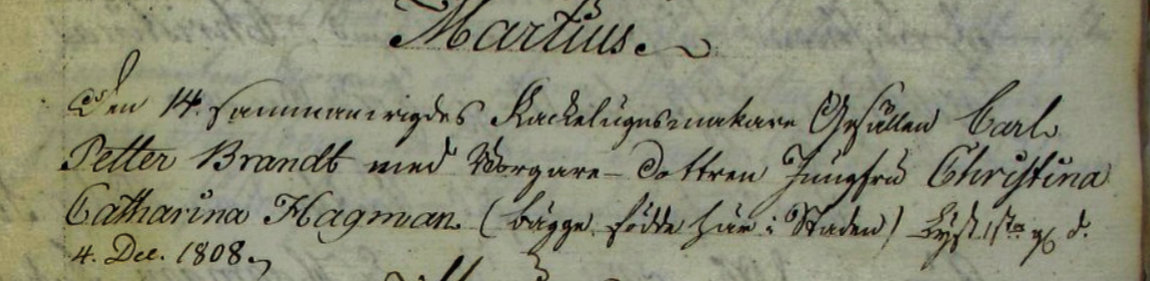 Martius.
Den 14. sammanvigdes Kackelugnsmakare Gesällen Carl
Petter Brandt med Borgare-Dottren Jungfru Christina
Catharina Hagman (bägge födde här i Staden) Lyst 1sta g. d.
4. Dec. 1808.